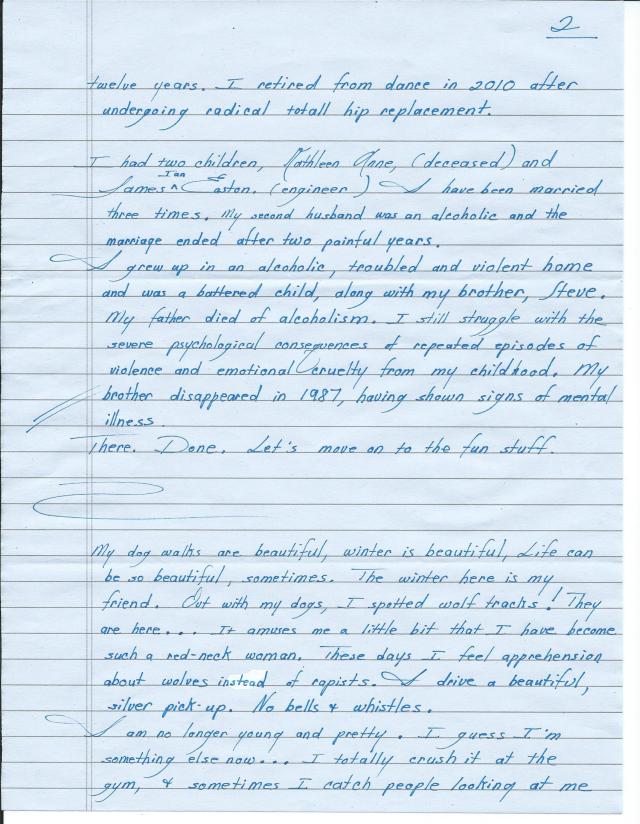 2
twelve years. I retired from dance in 2010 after
undergoing radical totall hip replacement.
I had two children, Kathleen Anne, (deceased) and
Ian
James ^ Easton. (engineer) I have been married
three times. My second husband was an alcoholic and the
marriage ended after two painful years.
I grew up in an alcoholic, troubled and violent home
and was a battered child, along with my brother, Steve.
My father died of alcoholism. I still struggle with the
severe psychological consequences of repeated episodes of
violence and emotional cruelty from my childhood. My
brother disappeared in 1987, having shown signs of mental
illness.
There. Done. Let's move on to the fun stuff.
My dog walks are beautiful, winter is beautiful, Life can
be so beautiful, sometimes. The winter here is my
friend. Out with my dogs, I spotted wolf tracks! They
are here... It amuses me a little bit that I have become
such a red-neck woman. These days I feel apprehension
about wolves instead of rapists. I drive a beautiful,
silver pick-up. No bells & whistles.
I am no longer young and pretty. I guess I'm
something else now... I totally crush it at the
gym, & sometimes I catch people looking at me